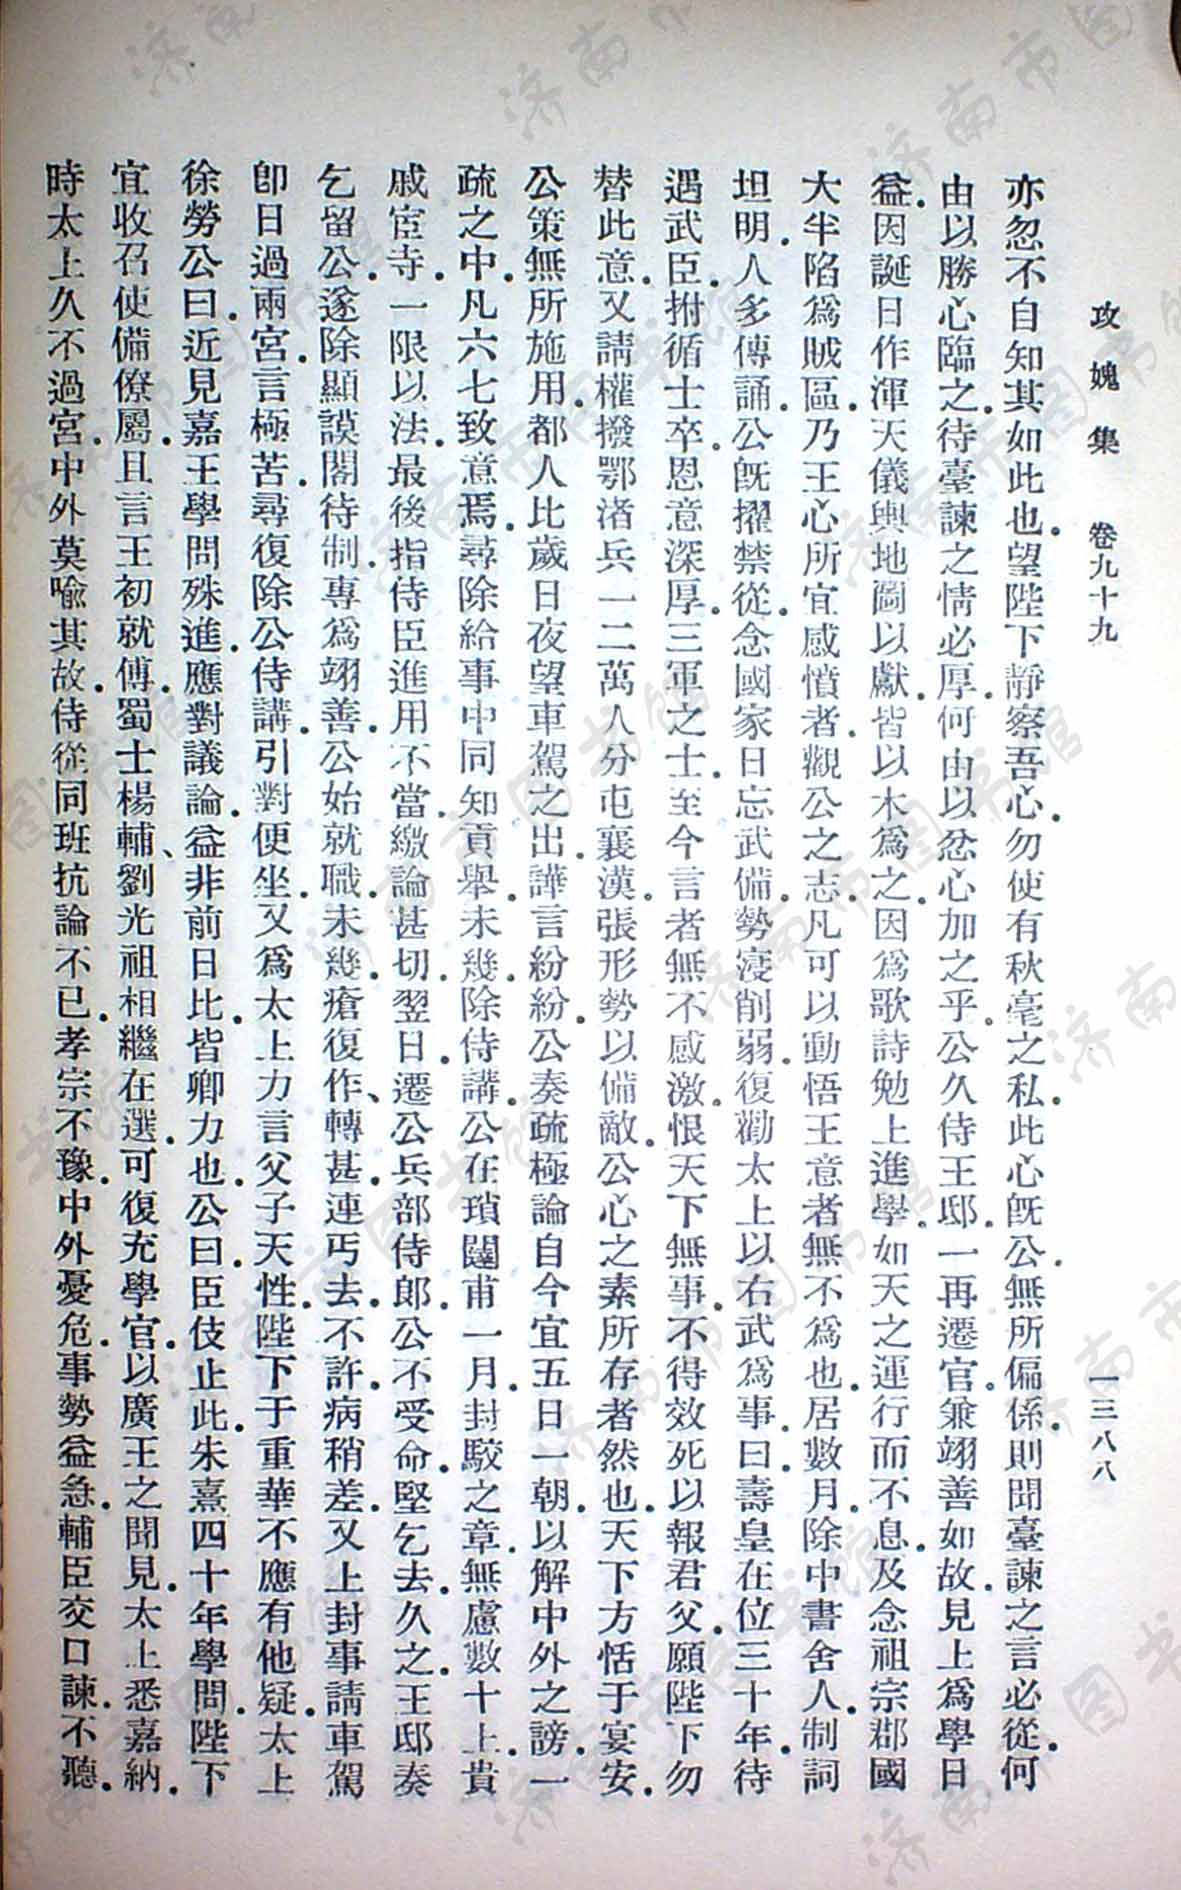 攻媿集 卷九十九 一三八八
亦忽不自知其如此也。望陛下靜察吾心。勿使有秋毫之私。此心旣公。無所偏係。則聞臺諫之言必從。何
由以勝心臨之。待臺諫之情必厚。何由以忿心加之乎。公久侍王邸。一再遷官。兼翊善如故。見上爲學日
益。因誕日作渾天儀輿地圖以獻。皆以木爲之。因爲歌詩勉上進學。如天之運行而不息。及念祖宗郡國
大半陷爲賊區。乃王心所宜感憤者。觀公之志。凡可以動悟王意者無不爲也。居數月。除中書舍人。制詞
坦明。人多傳誦。公旣擢禁從。念國家日忘武備。勢寖削弱。復勸太上以右武爲事。曰。壽皇在位三十年。待
遇武臣。拊循士卒。恩意深厚。三軍之士。至今言者無不感激。恨天下無事。不得效死以報君父。願陛下勿
替此意。又請權撥鄂渚兵一二萬人分屯襄漢。張形勢以備敵。公心之素所存者然也。天下方恬于宴安。
公策無所施用。都人比歲日夜望車駕之出。譁言紛紛。公奏疏極論自今宜五日一朝。以解中外之謗。一
疏之中。凡六七致意焉。尋除給事中同知貢舉。未幾。除侍講。公在瑣闥甫一月。封駮之章。無慮數十上。貴
戚宦寺。一限以法。最後指侍臣進用不當。繳論甚切。翌日。遷公兵部侍郎。公不受命。堅乞去。久之。王邸奏
乞留公。遂除顯謨閣待制。專爲翊善。公始就職。未幾。瘡復作、轉甚。連丐去。不許。病稍差。又上封事請車駕
卽日過兩宮。言極苦。尋復除公侍講。引對便坐。又爲太上力言父子天性。陛下于重華不應有他疑。太上
徐勞公曰。近見嘉王學問殊進。應對議論。益非前日比。皆卿力也。公曰。臣伎止此。朱熹四十年學問。陛下
宜收召使備僚屬。且言王初就傅。蜀士楊輔、劉光祖相繼在選。可復充學官。以廣王之聞見。太上悉嘉納。
時太上久不過宮。中外莫喩其故。侍從同班抗論不已。孝宗不豫。中外憂危。事勢益急。輔臣交口諫。不聽。